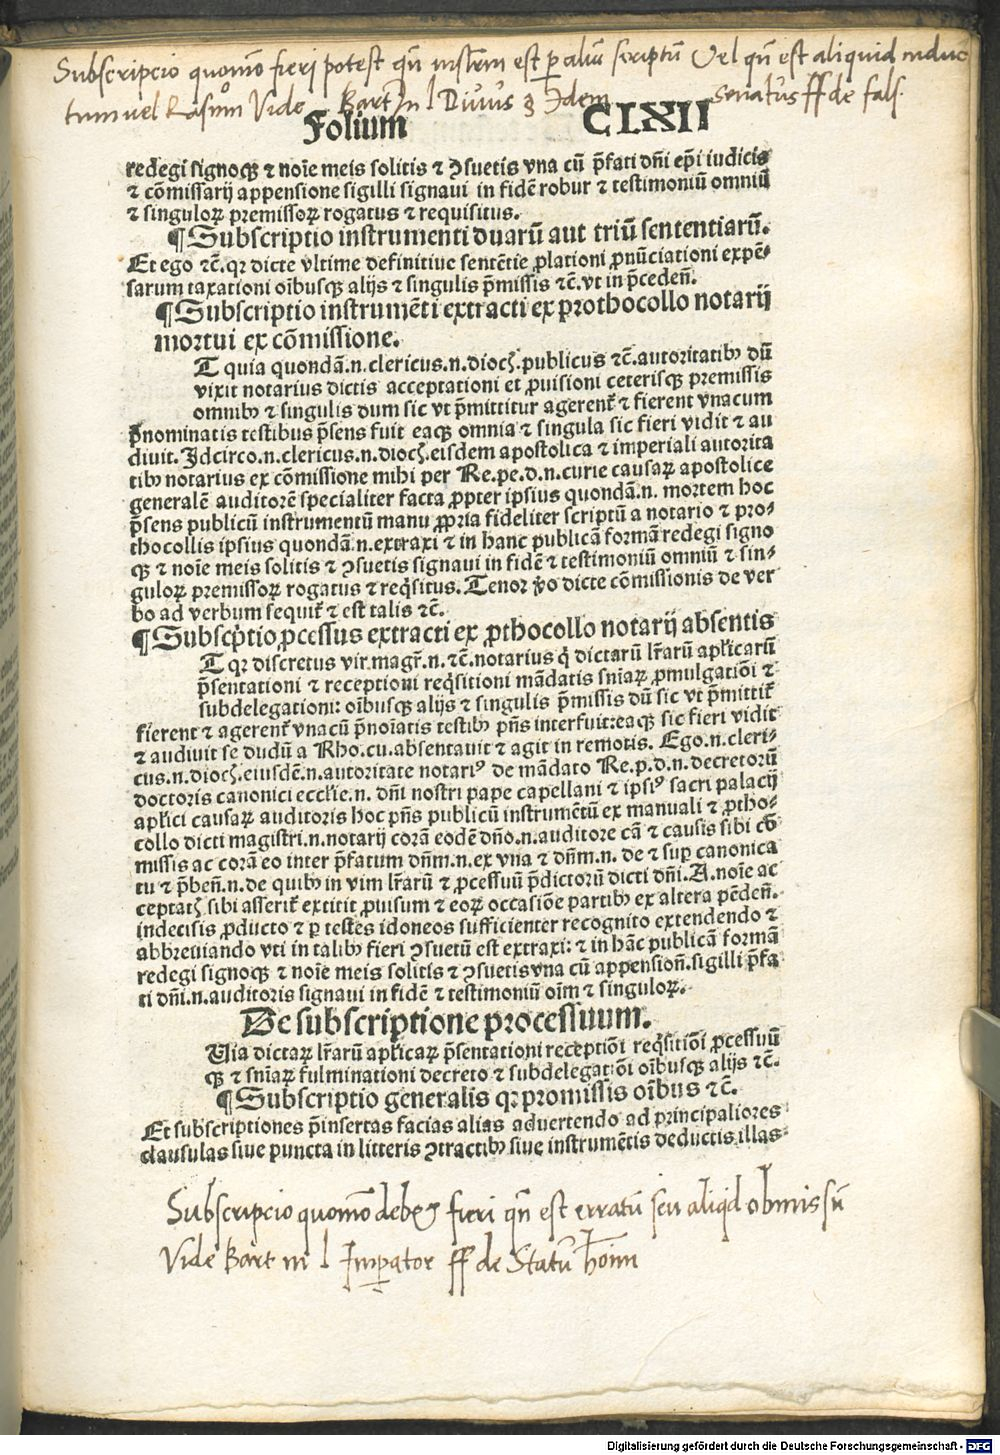 Subscripcio quomō fieri potest qn̄ instr̄m est ꝑ aliū scriptū Vel qn̄ est aliquid induc
tum vel Rasum Vide Bart in l Diuus § Idem senatus ff de fals.
Folium CLXII
redegi signoqꝫ ⁊ noīe meis solitis ⁊ ꝯsuetis vna cū p̄fati dn̄i ep̄i iudicis
⁊ cōmissarij appensione sigilli signaui in fidē robur ⁊ testimoniū omniū
⁊ singuloꝝ premissoꝝ rogatus ⁊ requisitus.
¶ Subscriptio instrumenti duarū aut triū sententiarū.
Et ego ⁊c̄. qꝛ dicte vltime definitiue sentētie ꝓlationi pronūciationi expē-
sarum taxationi oībusqꝫ alijs ⁊ singulis p̄missis ⁊c̄. vt in p̄ceden̄.
¶ Subscriptio instrumēti extracti ex prothocollo notarij
mortui ex cōmissione.
T quia quondā.n.clericus.n.dioc̄.publicus ⁊c̄.autoritatibꝰ dū
vixit notarius dictis acceptationi et ꝓuisioni ceterisqꝫ premissis
omnibꝰ ⁊ singulis dum sic vt p̄mittitur agerent̄ ⁊ fierent vnacum
p̄nominatis testibus p̄sens fuit eaqꝫ omnia ⁊ singula sic fieri vidit ⁊ au
diuit. Idcirco.n.clericus.n.dioc̄.eisdem apostolica ⁊ imperiali autorita
tibꝰ notarius ex cōmissione mihi per Re.pe.d.n.curie causaꝝ apostolice
generalē auditorē specialiter facta ꝓpter ipsius quondā.n. mortem hoc
p̄sens publicū instrumentū manu ꝓpria fideliter scriptū a notario ⁊ pro-
thocollis ipsius quondā.n.extraxi ⁊ in hanc publicā formā redegi signo
qꝫ ⁊ noīe meis solitis ⁊ ꝯsuetis signaui in fidē ⁊ testimoniū omniū ⁊ sin-
guloꝝ premissoꝝ rogatus ⁊ req̄situs. Tenor v̄o dicte cōmissionis de ver
bo ad verbum sequit̄ ⁊ est talis ⁊c̄.
¶ Subscp̄tio ꝓcessus extracti ex ꝓthocollo notarij absentis
T qꝛ discretus vir magr̄.n. ⁊c̄.notarius q̄ dictarū lr̄arū apl̄icarū
p̄sentationi ⁊ receptioni req̄sitioni mādatis sn̄iaꝝ ꝓmulgatiōi ⁊
subdelegationi: oībusqꝫ alijs ⁊ singulis p̄missis dū sic vt p̄mittit̄
fierent ⁊ agerent̄ vnacū p̄noīatis testibꝰ pn̄s interfuit:eaqꝫ sic fieri vidit
⁊ audiuit se dudū a Rho.cu.absentauit ⁊ agit in remotis. Ego.n.cleri-
cus.n.dioc̄.eiusdē.n.autoritate notariꝰ de mādato Re.p.d.n.decretorū
doctoris canonici eccl̄ie.n. dn̄i nostri pape capellani ⁊ ipsiꝰ sacri palacij
apl̄ici causaꝝ auditoris hoc pn̄s publicū instrumētū ex manuali ⁊ ꝓtho-
collo dicti magistri.n.notarij corā eodē dn̄o.n.auditore cā ⁊ causis sibi cō
missis ac corā eo inter p̄fatum dn̄m.n.ex vna ⁊ dn̄m.n. de ⁊ suꝑ canonica
tu ⁊ p̄ben̄.n.de quibꝰ in vim lr̄arū ⁊ ꝓcessuū p̄dictorū dicti dn̄i.A.noīe ac
ceptat̄ sibi asserit̄ extitit ꝓuisum ⁊ eoꝝ occasiōe partibꝰ ex altera pēden̄.
indecisis ꝓducto ⁊ ꝑ testes idoneos sufficienter recognito extendendo ⁊
abbreuiando vti in talibꝰ fieri ꝯsuetū est extraxi: ⁊ in hāc publicā formā
redegi signoqꝫ ⁊ noīe meis solitis ⁊ ꝯsuetis vna cū appension̄.sigilli p̄fa
ti dn̄i.n.auditoris signaui in fidē ⁊ testimoniū oīm ⁊ singuloꝝ.
De subscriptione processuum.
Uia dictaꝝ lr̄arū apl̄icaꝝ p̄sentationi receptiōi req̄sitiōi ꝓcessuū
qꝫ ⁊ sn̄iaꝝ fulminationi decreto ⁊ subdelegatiōi oībusqꝫ alijs ⁊c̄.
¶ Subscriptio generalis qꝛ promissis oībus ⁊c̄.
Et subscriptiones p̄insertas facias alias aduertendo ad principaliores
clausulas siue puncta in litteris ꝯtractibꝰ siue instrumētis deductis illas
Subscripcio quomō debeꝫ fieri qn̄ est erratū seu aliq̄d obmissū
Vide Bart in l Imꝑator ff de Statū hōm
Digitalisierung gefördert durch die Deutsche Forschungsgemeinschaft - DFG